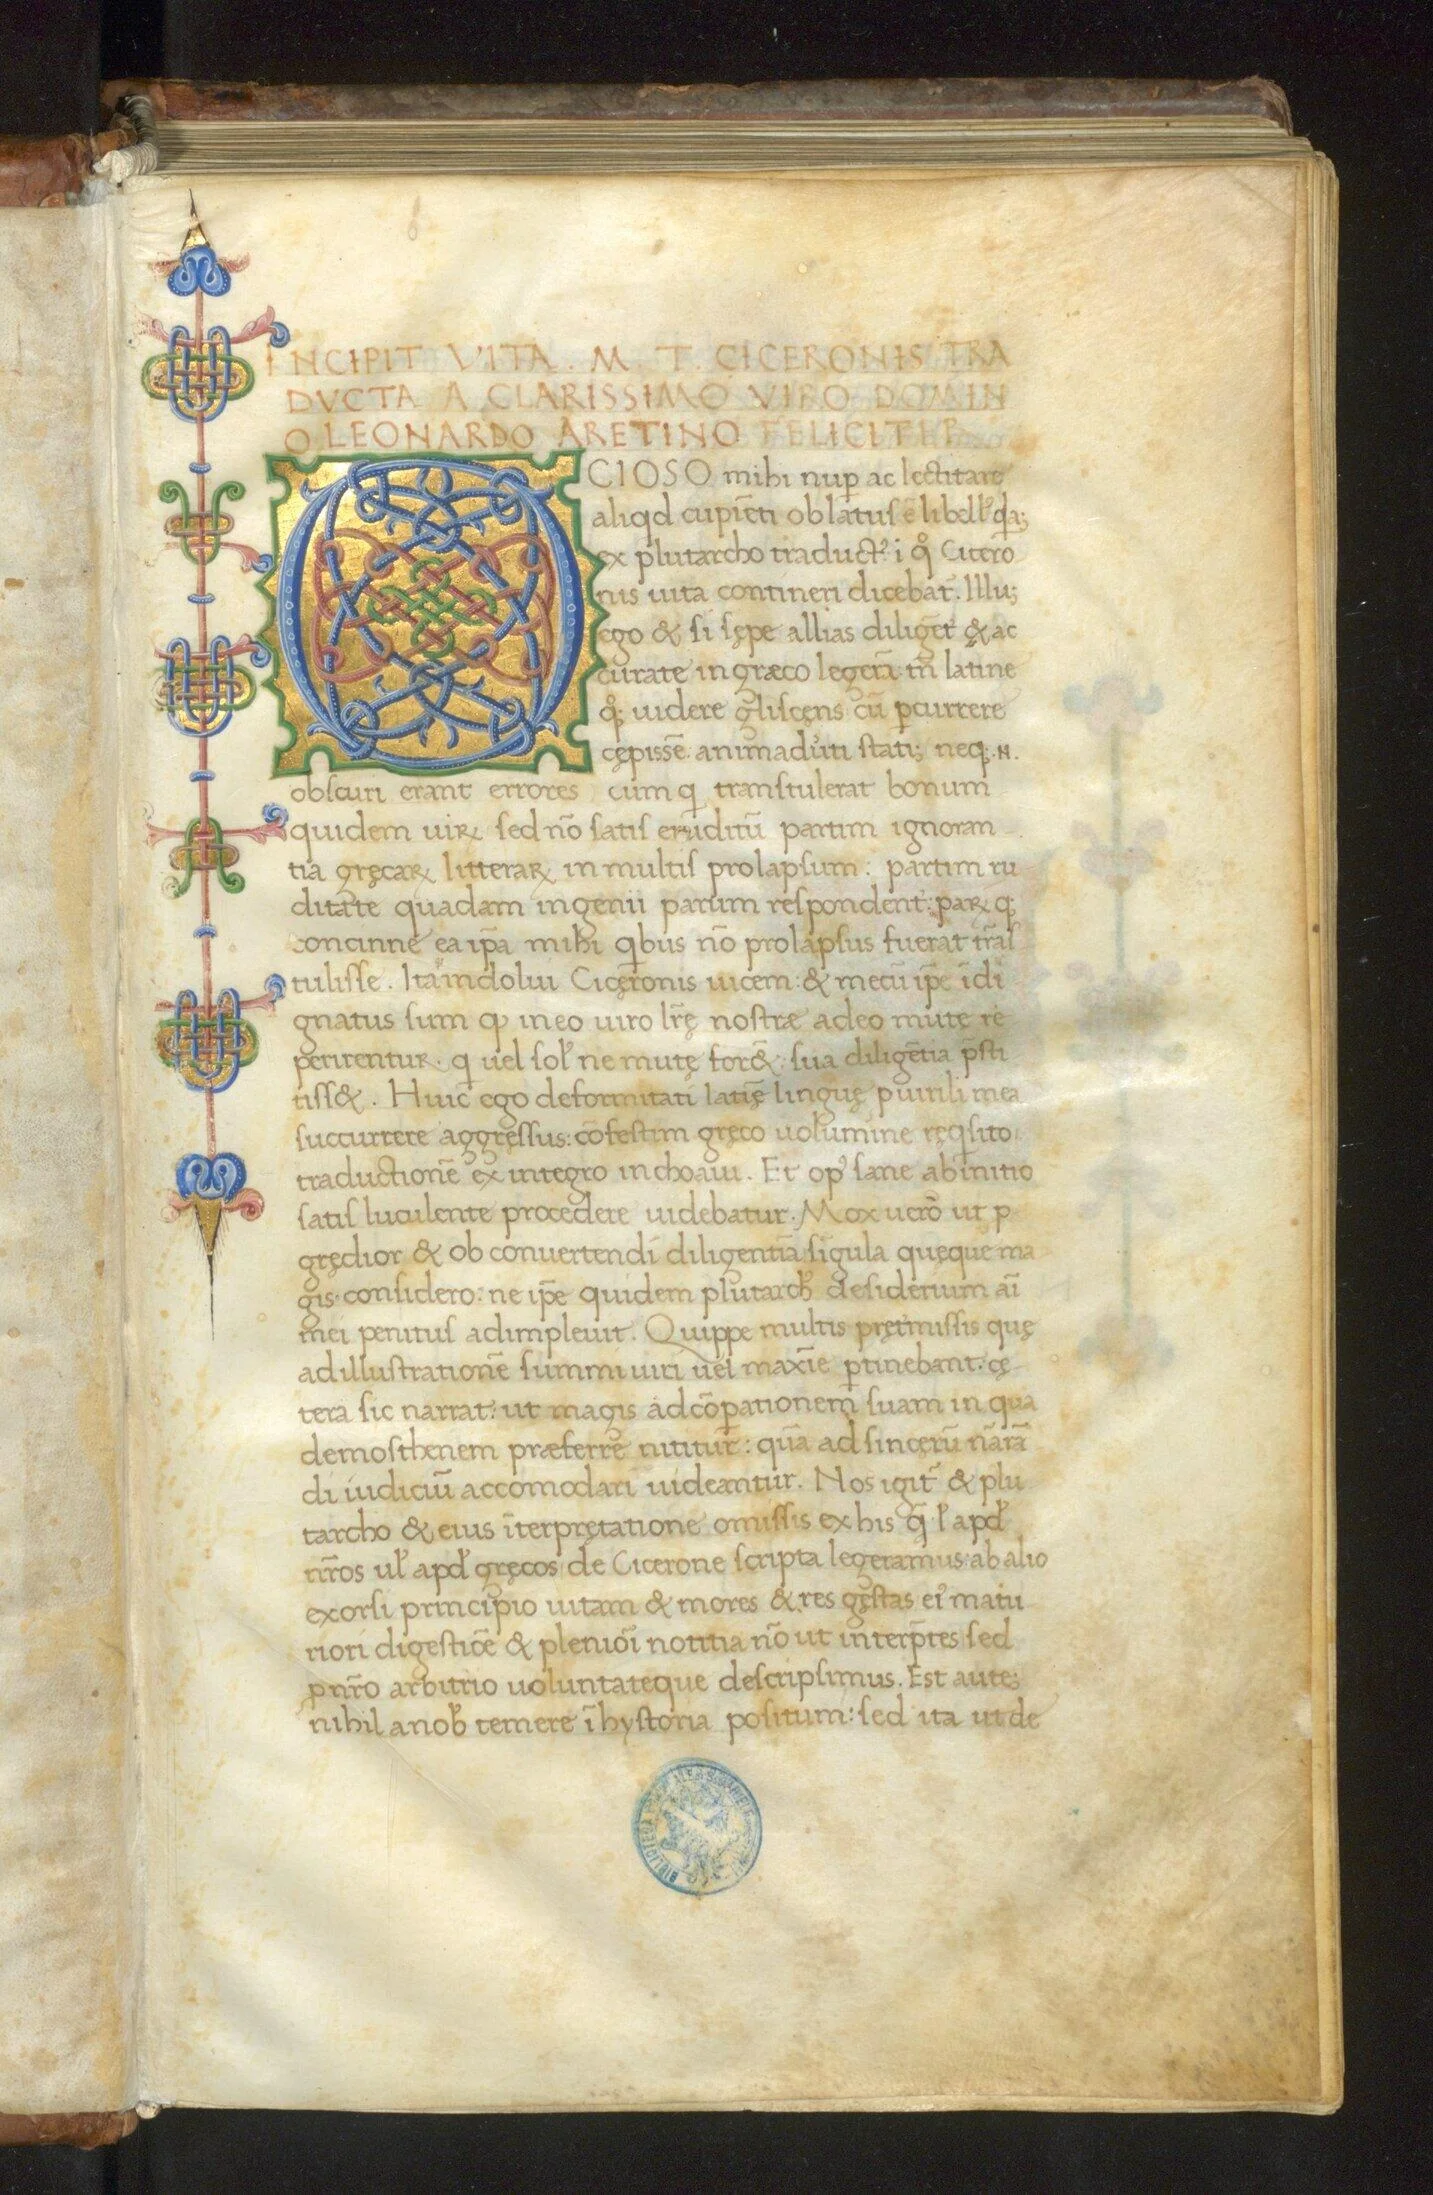 INCIPIT VITA . M . T . CICERONIS TRA
DVCTA A CLARISSIMO VIRO DOMIN
O LEONARDO ARETINO FELICITER
OCIOSO mihi nup̄ ac lectitare
aliqd cupiēti oblatus ē libell' qda;
ex plutarcho traduct' i qͦ Cicero
nis uita contineri dicebat̄. Illu;
ego & si sępe allias diligēt & ac
curate in græco legerā tn̄ latine
qͦ; uidere gliscens cū p̄currere
cępissē animaduti stati; neq; .N.
obscuri erant errores cum q transtulerat bonum
quidem uiꝝ sed nō satis eruditū partim ignoran
tia gręcaꝝ litteraꝝ in multis prolapsum : partim ru
ditate quadam ingenii parum respondent : paꝝ q;
concinne ea ip̄a mihi qbus nō prolapsus fuerat trās
tulisse . Ita indolui Cicęronis uicem : & mecū ip̄e īdi
gnatus sum ꝙ in eo uiro lr̄ę nostræ adeo mute re
perirentur . q uel sol' ne mutę for& sua diligētia p̄sti
tiss& . Huic ego deformitati latię linguę p uirili mea
succurrere aggressus : cōfestim gręco uolumine ręqsito
traductionē ex integro inchoaui . Et op' sane ab initio
satis luculente procedere uidebatur . Mox uero ut p
gredior & ob conuertendi diligentiā sīgula quęque ma
gis considero : ne ip̄e quidem plutarch' desiderium aī
mei penitus adimpleuit . Quippe multis prętmissis quę
ad illustrationē summi uiri uel maxīe p̄tinebant : cę
tera sic narrat : ut magis ad cōparationem suam in qua
demosthenem præferre nititur : quā ad sincerū nārā
di iudiciū accomodari uideantur . Nos igit̄ & plu
tarcho & eius īterpretatione omissis ex his q̄ l' apd'
nr̄os ul' apd' gręcos de Cicerone scripta legeramus ab alio
exorsi principio uitam & mores & res gęstas ei' matu
riori digestiōe & pleniōi notitia nō ut interp̄tes sed
p nr̄o arbitrio uoluntateque descripsimus . Est aute;
nihil a nob' temere ī hystoria positum : sed ita ut de